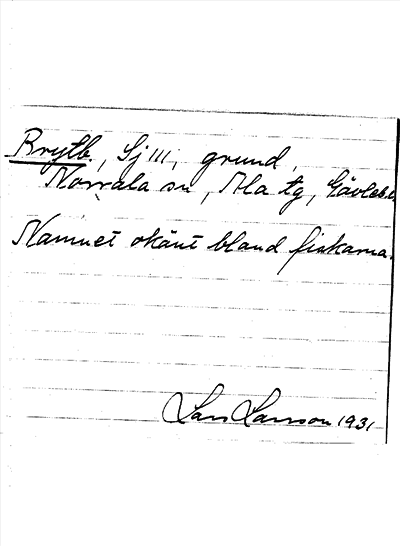 Brytb., Sj 111, grund,
Norrala sn, Ala tg, Gävleb.
Namnet okänt bland fiskarna.
Lars Larsson 1931